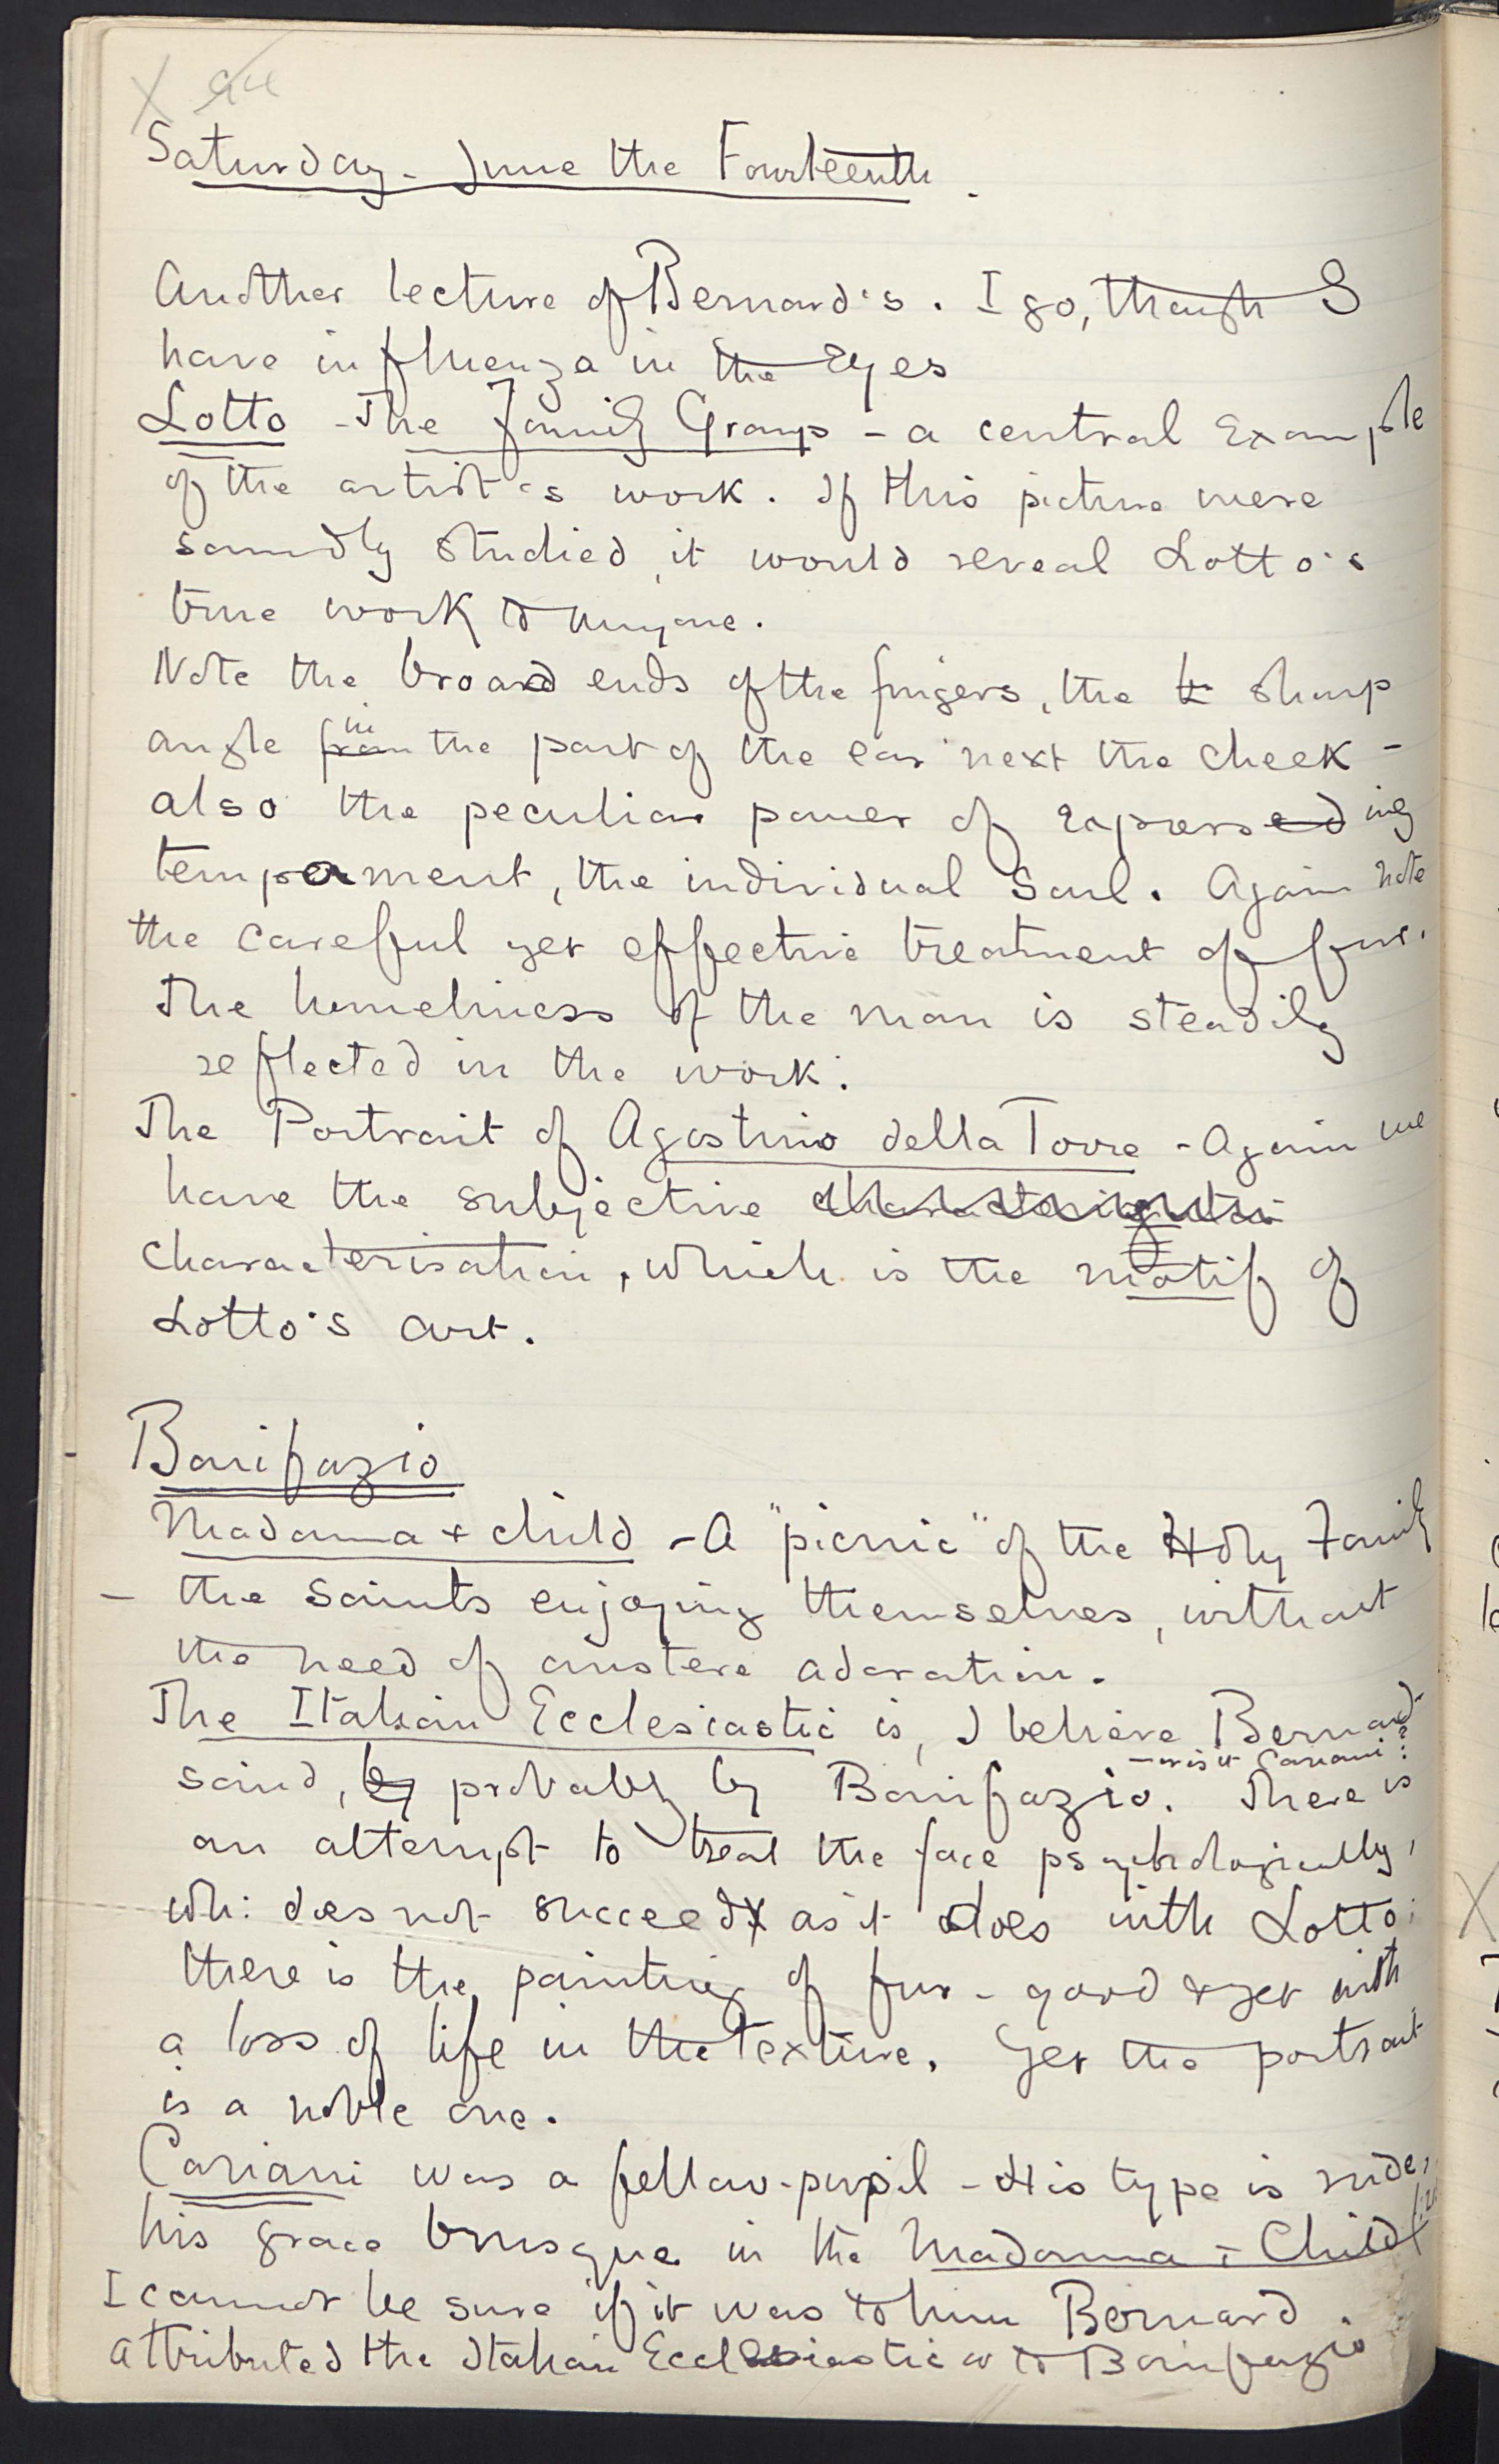 Saturday - June the Fourteenth.
Another lecture of Bernard's. I go, though I
have influenza in the Eyes
Lotto - The Family Group - a central Example
of the artist's work. If this picture were
soundly studied, it would reveal Lotto's
true work to anyone.
Note the broad ends of the fingers, the sharp
angle from in the part of the ear next the cheek -
also the peculiar power of expresseding
temperment, the individual Soul. Again note
the careful yet effective treatment of fur.
The homeliness of the man is steadily
reflected in the work.
The Portrait of Agostino della Torre - Again we
have the subjective characterization
characterisation, which is the motif of
Lotto's art.
Bonifazio
Madonna + child - A "picnic" of the Holy Family
- the saints enjoying themselves, without
the need of austere adoration.
The Italian Ecclesiastic is, I believe Bernard
said, by probably by Bonifazio. - or is it Cariani? There is
an attempt to treat the face psychologically,
wh: does not succeed as it does with Lotto;
there is the painting of fur - good & yet with
a loss of life in the texture. Yet the portrait
is a noble one.
Cariani was a fellow-pupil - His type is rude,
his grace brusque in the Madonna + Child
I cannot be sure if it was to him Bernard
attributed the Italian Ecclesiastic or to Bonifazio